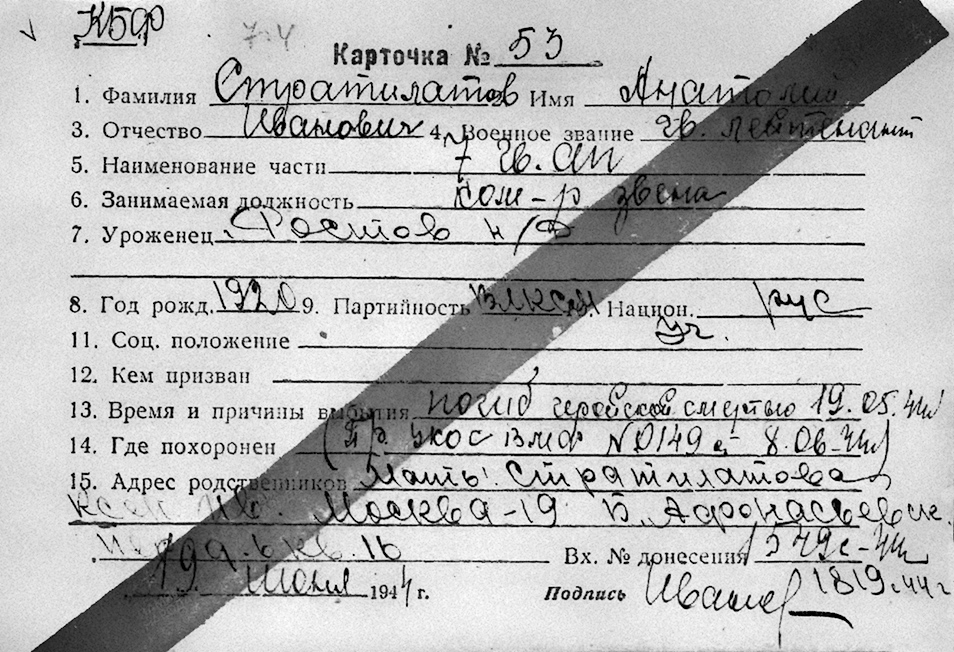 КБФ 7.4
Карточка № 53
1. Фамилия Стратилатов 2. Имя Анатолий
3. Отчество Иванович 4. Военное звание гв. лейтенант
5. Наименование части 7 гв. ап
6. Занимаемая должность ком-р звена
7. Уроженец Ростов н/Д
8. Год рожд. 1920 9. Партийность ВЛКСМ 10. Национ. рус
11. Соц. положение уч.
12. Кем призван
13. Время и причины выбытия погиб геройской смертью 19.05.44
14. Где похоронен (Пр. УКОС ВМФ №0149 8.06.44)
15. Адрес родственников Мать: Стратилатова
Ив. Москва-19 Б. Афонасьевск.
кв. 16 Вх. № донесения 1549с-44
19 июня 1944 г. Подпись 1819.44г